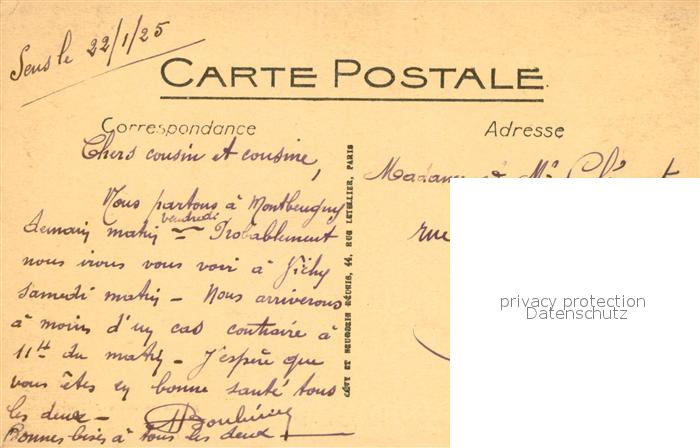 Sens le 22/1/25
CARTE POSTALE
Correspondance
Adresse
Chers cousin et cousine,
Nous partons à Montbeugny
vendredi
demain matin — Probablement
nous irons vous voir à Vichy
samedi matin — Nous arriverons
à moins d'un cas contraire à
11h du matin — J'espère que
vous êtes en bonne santé tous
les deux —
Bonnes bises à tous les deux
LÉVY ET NEURDEIN RÉUNIS, 44, RUE LETELLIER, PARIS
Madame et Mr
rue
privacy protection
Datenschutz